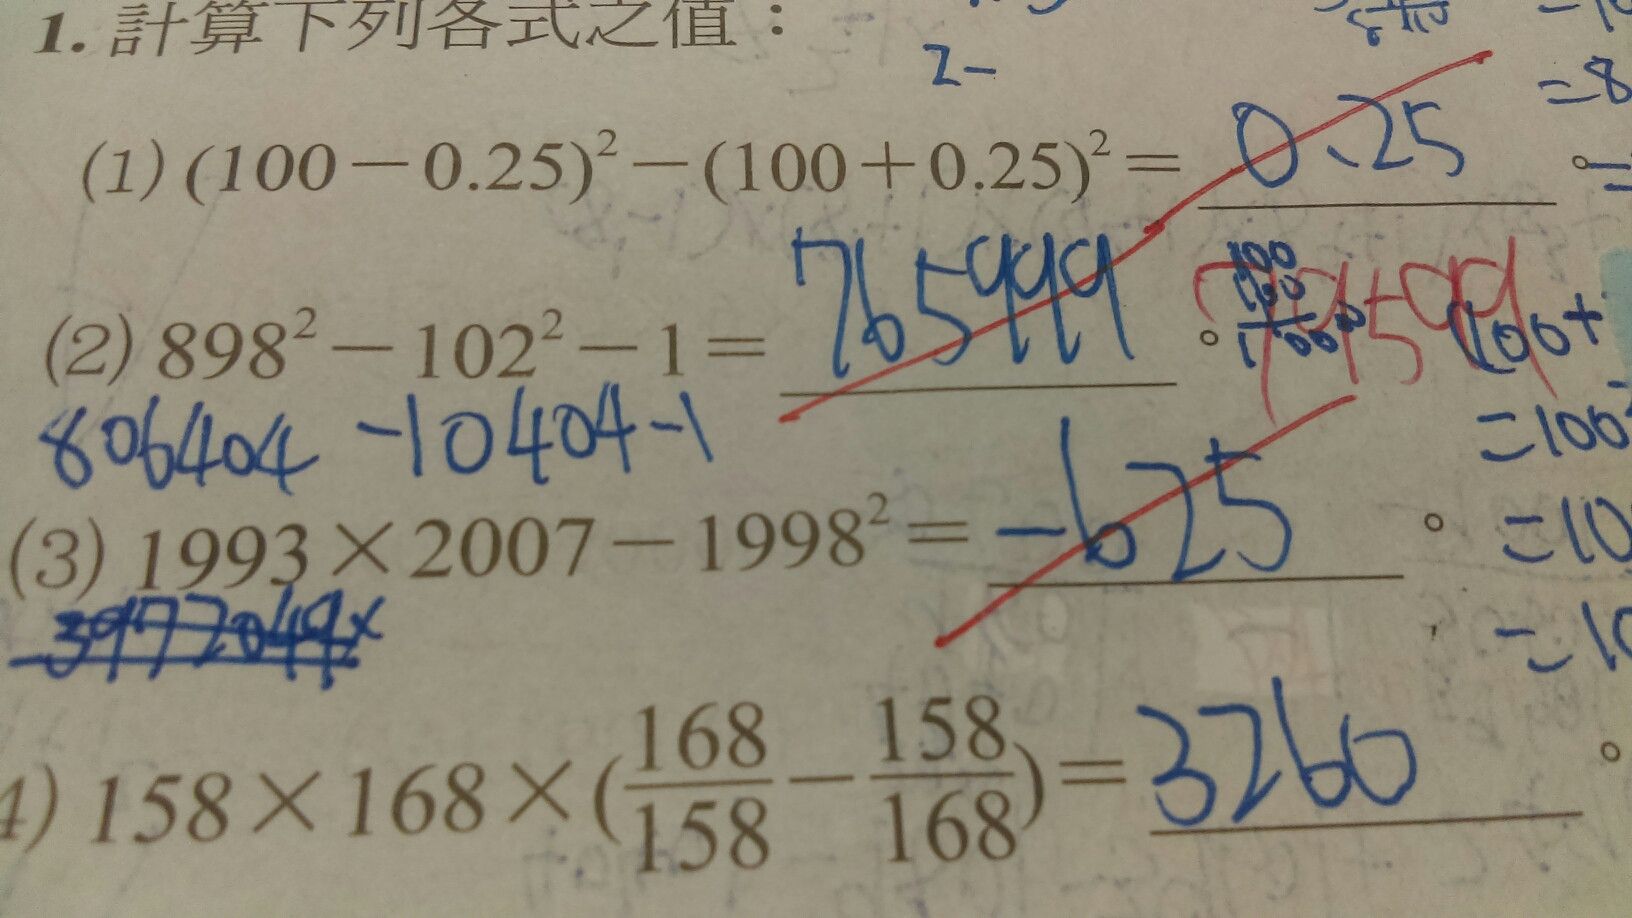 1. 計算下列各式之值：
2−
=8
(1) (100－0.25)²－(100＋0.25)²＝ 0.25 。
(2) 898²－102²－1＝ 765999 。 795599
100
100
10000
(100+
806404 -10404-1
=100
(3) 1993×2007－1998²＝ -625 。
=10
3977049x
=10
4) 158×168×(168/158－158/168)＝ 3260 。